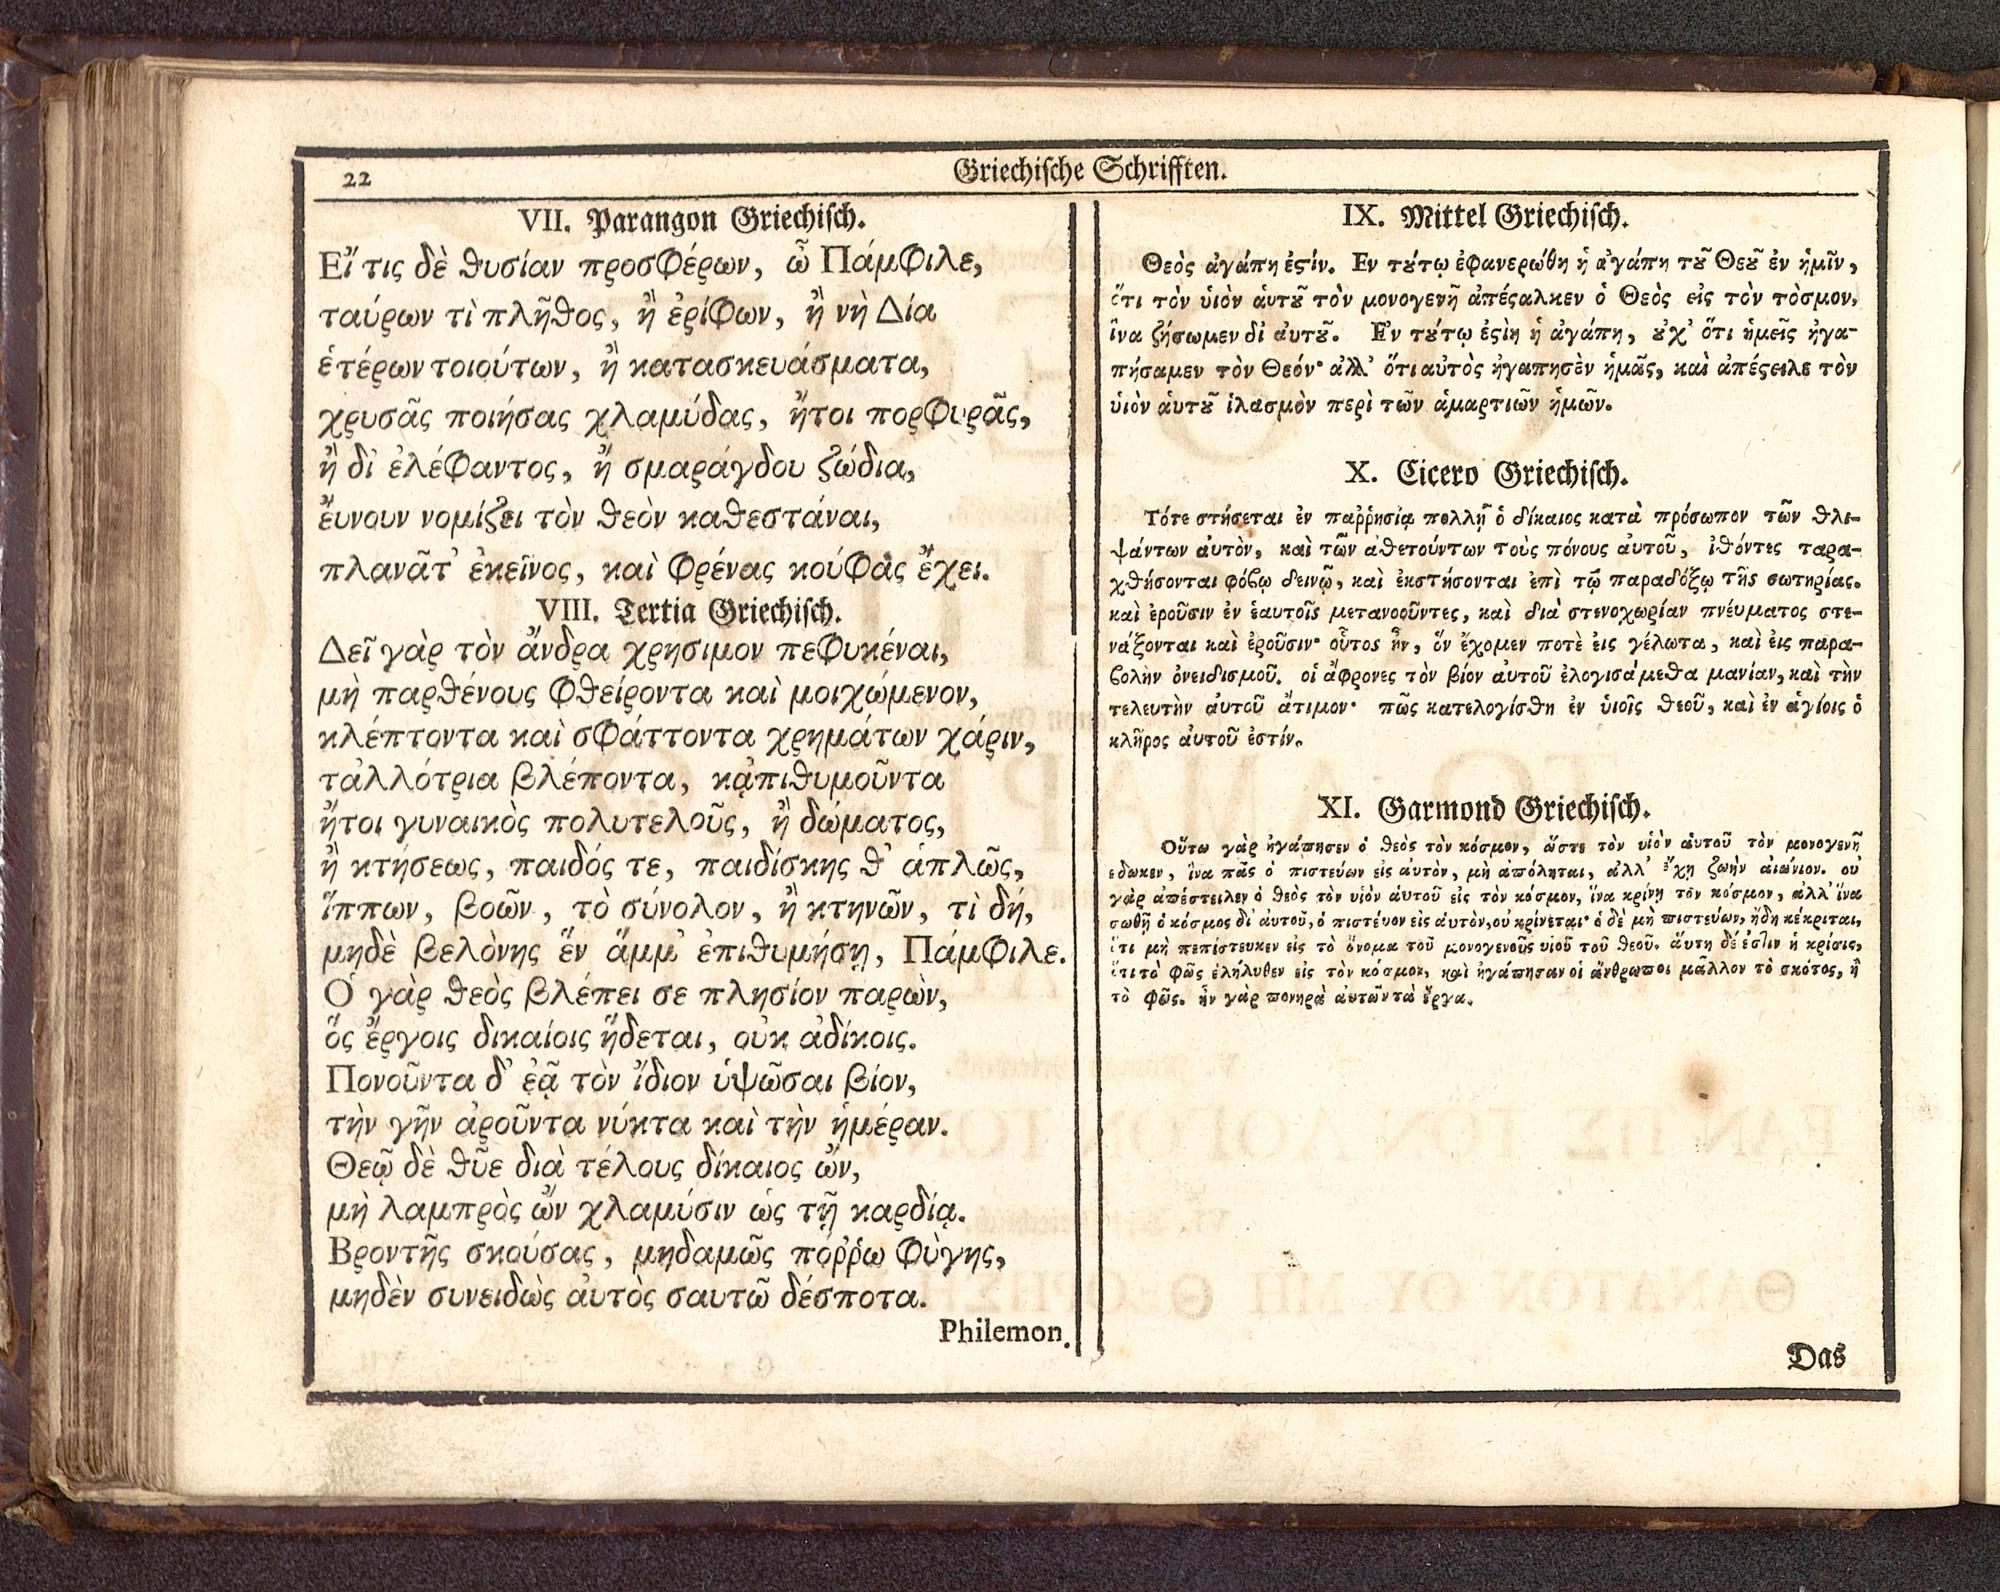 22
Griechische Schrifften.
VII. Parangon Griechisch.
Εἴ τις δὲ θυσίαν προσφέρων, ὦ Πάμφιλε,
ταύρων τὶ πλῆθος, ἢ ἐρίφων, ἢ νὴ Δία
ἑτέρων τοιούτων, ἢ κατασκευάσματα,
χρυσᾶς ποιήσας χλαμύδας, ἤτοι πορφυρᾶς,
ἢ δι' ἐλέφαντος, ἢ σμαράγδου ζώδια,
ἔυνουν νομίζει τὸν θεὸν καθεστάναι,
πλανᾶτ' ἐκεῖνος, καὶ φρένας κούφας ἔχει.
VIII. Tertia Griechisch.
Δεῖ γὰρ τὸν ἄνδρα χρησιμον πεφυκέναι,
μὴ παρθένους φθείροντα καὶ μοιχώμενον,
κλέπτοντα καὶ σφάττοντα χρημάτων χάριν,
τἀλλότρια βλέποντα, κᾀπιθυμοῦντα
ἤτοι γυναικὸς πολυτελοῦς, ἢ δώματος,
ἢ κτήσεως, παιδός τε, παιδίσκης θ' ἁπλῶς,
ἵππων, βοῶν, τὸ σύνολον, ἢ κτηνῶν, τὶ δή,
μηδὲ βελὸνης ἓν ἅμμ' ἐπιθυμήσῃ, Πάμφιλε.
Ὁ γὰρ θεὸς βλέπει σε πλησίον παρὼν,
ὅς ἔργοις δικαίοις ἥδεται, οὐκ ἀδίκοις.
Πονοῦντα δ' ἐᾷ τὸν ἴδιον ὑψῶσαι βίον,
τὴν γῆν ἀροῦντα νύκτα καὶ τὴν ἡμέραν.
Θεῷ δὲ θῦε διὰ τέλους δίκαιος ὤν,
μὴ λαμπρὸς ὢν χλαμύσιν ὡς τῇ καρδίᾳ.
Βροντῆς σκούσας, μηδαμῶς πόῤῥω φὺγης,
μηδὲν συνειδὼς ἀυτὸς σαυτῶ δέσποτα.
Philemon.
IX. Mittel Griechisch.
Θεὸς ἀγάπη ἐϛίν. Εν τȣ́τῳ ἐφανερώθη ἡ ἀγάπη τȣ͂ Θεȣ͂ ἐν ἡμῖν,
ὅτι τὸν ὑιὸν ἁυτȣ͂ τὸν μονογενῆ ἀπέϛαλκεν ὁ Θεὸς εἰς τὸν τὸσμον,
ἵνα ζήσωμεν δι' ἀυτȣ͂. Εν τȣ́τῳ ἐϛὶν ἡ ἀγάπη, ȣ̓χ' ὅτι ἡμεῖς ἠγα-
πήσαμεν τὸν Θεόν· ἀλλ' ὅτι αὐτὸς ἠγαπησὲν ἡμᾶς, καὶ ἀπέϛειλε τὸν
ὑιὸν ἁυτȣ͂ ἱλασμὸν περὶ τῶν ἁμαρτιῶν ἡμῶν.
X. Cicero Griechisch.
Τότε στήσεται ἐν παῤῥησίᾳ πολλῇ ὁ δίκαιος κατὰ πρόσωπον τῶν θλι-
ψάντων ἀυτὸν, καὶ τῶν ἀθετούντων τοὺς πόνους ἀυτοῦ, ἰθόντες ταρα-
χθήσονται φόϐῳ δεινῷ, καὶ ἐκστήσονται ἐπὶ τῷ παραδόξῳ τῆς σωτηρίας.
καὶ ἐροῦσιν ἐν ἑαυτοῖς μετανοοῦντες, καὶ διὰ στενοχωρίαν πνέυματος στε-
νάξονται καὶ ἐροῦσιν· οὗτος ἦν, ὅν ἔχομεν ποτὲ ἐις γέλωτα, καὶ ἐις παρα-
ϐολὴν ὀνειδισμοῦ. οἱ ἄφρονες τὸν βίον ἀυτοῦ ἐλογισάμεθα μανίαν, καὶ τὴν
τελευτὴν ἀυτοῦ ἄτιμον· πῶς κατελογίσθη ἐν ὑιοῖς θεοῦ, καὶ ἐν ἁγίοις ὁ
κλῆρος ἀυτοῦ ἐστίν.
XI. Garmond Griechisch.
Οὕτω γὰρ ἠγάπησεν ὁ θεὸς τὸν κόσμον, ὥστε τὸν υἱὸν ἁυτοῦ τὸν μονογενῆ
εδωκεν, ἵνα πᾶς ὁ πιστεύων εἰς ἀυτὸν, μὴ ἀπόληται, ἀλλ' ἔχη ζωὴν αἰώνιον. οὐ
γὰρ ἀπέστειλεν ὁ θεὸς τὸν υἱὸν ἁυτοῦ εἰς τὸν κόσμον, ἵνα κρίνῃ τὸν κόσμον, ἀλλ' ἵνα
σωθῇ ὁ κόσμος δι' ἀυτοῦ, ὁ πιστέυον εἰς ἀυτὸν, οὐ κρίνεται· ὁ δὲ μὴ πιστεύων, ἤδη κέκριται,
ὅτι μὴ πεπίστευκεν εἰς τὸ ὄνομα τοῦ μονογενοῦς υἱοῦ τοῦ θεοῦ. ἅυτη δέ ἐστιν ἡ κρίσις,
ὅτι τὸ φῶς ἐλήλυθεν εἰς τὸν κόσμον, καὶ ἠγάπησαν οἱ ἄνθρωποι μᾶλλον τὸ σκότος, ἢ
τὸ φῶς. ἦν γὰρ πονηρὰ ἀυτῶν τὰ ἔργα.
Das